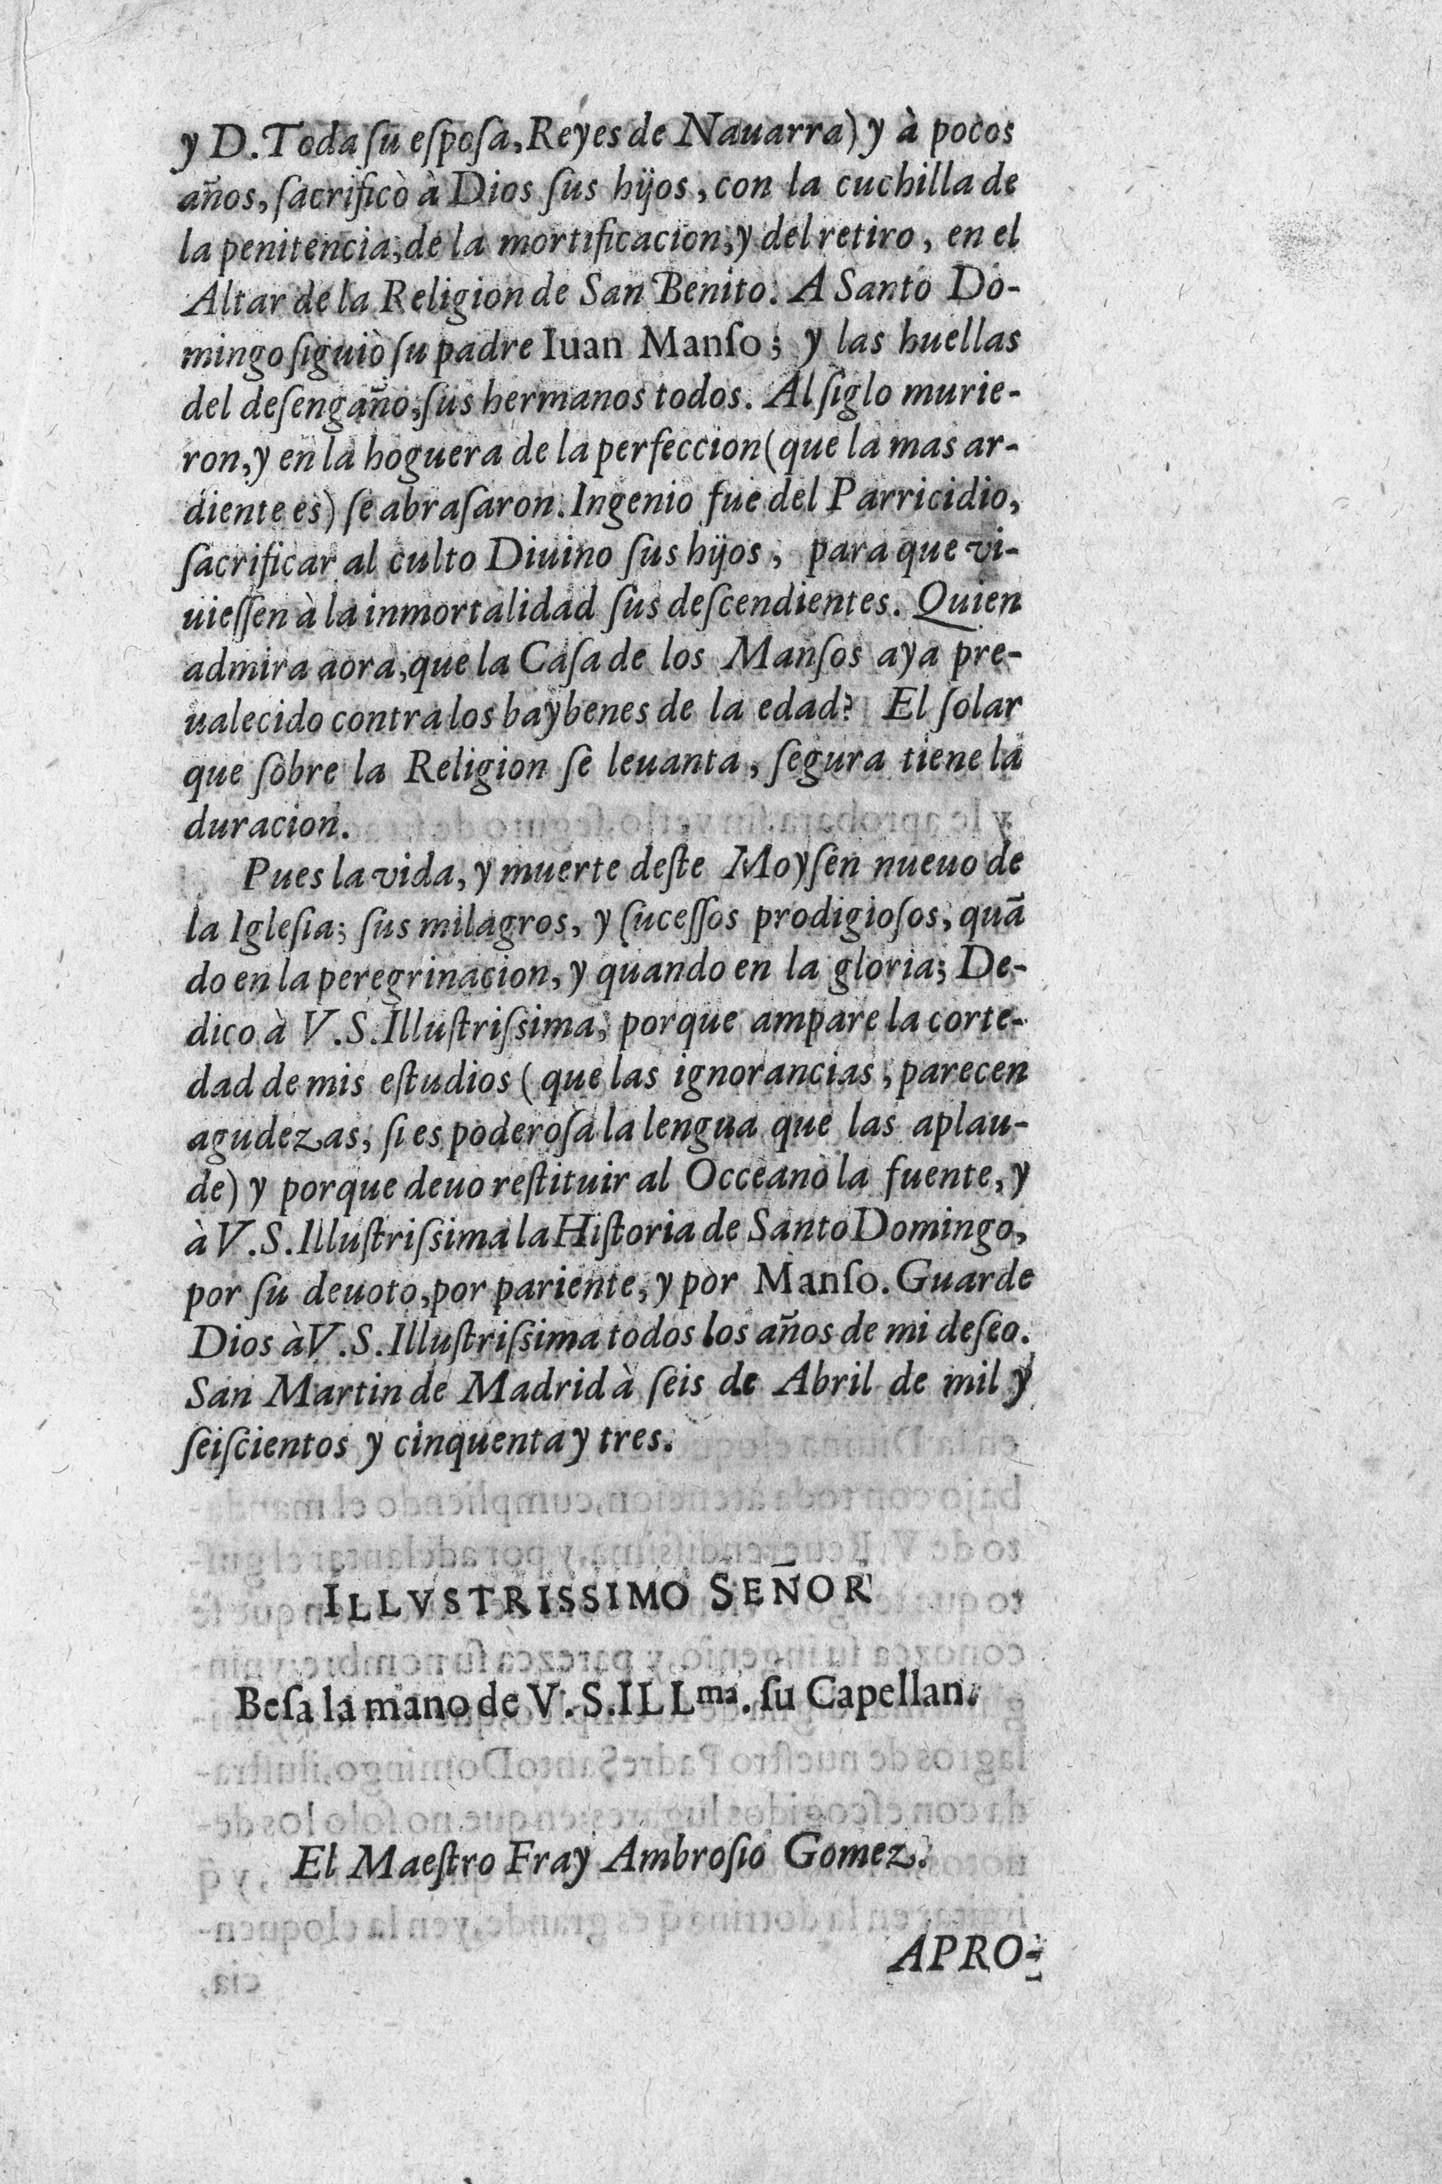 y D. Toda ſu eſpoſa, Reyes de Nauarra) y à pocos
años, ſacrificò à Dios ſus hijos, con la cuchilla de
la penitencia, de la mortificacion, y del retiro, en el
Altar de la Religion de San Benito. A Santo Do-
mingo ſiguiò ſu padre Iuan Manſo; y las huellas
del deſengaño, ſus hermanos todos. Al ſiglo murie-
ron, y en la hoguera de la perfeccion (que la mas ar-
diente es) ſe abraſaron. Ingenio fue del Parricidio,
ſacrificar al culto Diuino ſus hijos, para que vi-
uieſſen à la inmortalidad ſus deſcendientes. Quien
admira aora, que la Caſa de los Manſos aya pre-
ualecido contra los baybenes de la edad? El ſolar
que ſobre la Religion ſe leuanta, ſegura tiene la
duracion.
Pues la vida, y muerte deſte Moyſen nueuo de
la Igleſia; ſus milagros, y ſuceſſos prodigioſos, quã
do en la peregrinacion, y quando en la gloria; De-
dico à V.S. Illuſtriſsima, porque ampare la corte-
dad de mis eſtudios (que las ignorancias, parecen
agudezas, ſi es poderoſa la lengua que las aplau-
de) y porque deuo reſtituir al Occeano la fuente, y
à V.S. Illuſtriſsima la Hiſtoria de Santo Domingo,
por ſu deuoto, por pariente, y por Manſo. Guarde
Dios à V.S. Illuſtriſsima todos los años de mi deſeo.
San Martin de Madrid à ſeis de Abril de mil y
ſeiſcientos y cinquenta y tres.
ILLVSTRISSIMO SEÑOR
Beſa la mano de V.S.ILLma. ſu Capellan.
El Maeſtro Fray Ambroſio Gomez.
APRO-